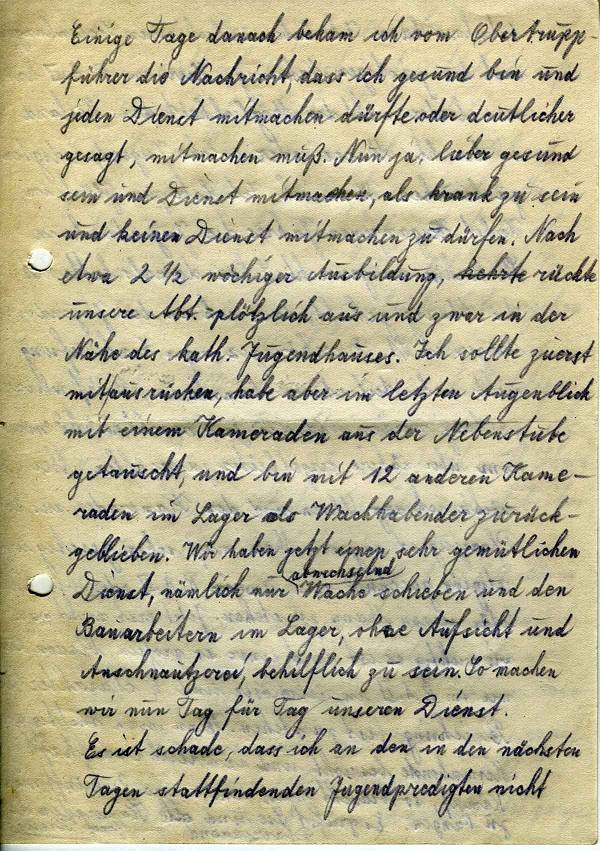 Einige Tage danach bekam ich vom Obertrupp-
führer die Nachricht, dass ich gesund bin und
jeden Dienst mitmachen dürfte oder deutlicher
gesagt, mitmachen muß. Nun ja, lieber gesund
sein und Dienst mitmachen, als krank zu sein
und keinen Dienst mitmachen zu dürfen. Nach
etwa 2 ½ wöchiger Ausbildung, kehrte rückte
unsere Abt. plötzlich aus und zwar in der
Nähe des kath. Jugendhauses. Ich sollte zuerst
mitausrücken, habe aber im letzten Augenblick
mit einem Kameraden aus der Nebenstube
getauscht, und bin mit 12 anderen Kame-
raden im Lager als Wachhabender zurück-
geblieben. Wir haben jetzt einen sehr gemütlichen
abwechselnd
Dienst, nämlich nur Wache schieben und den
Bauarbeitern im Lager, ohne Aufsicht und
Anschnautzerei, behilflich zu sein. So machen
wir nun Tag für Tag unseren Dienst.
Es ist schade, dass ich an den in den nächsten
Tagen stattfindenden Jugendpredigten nicht